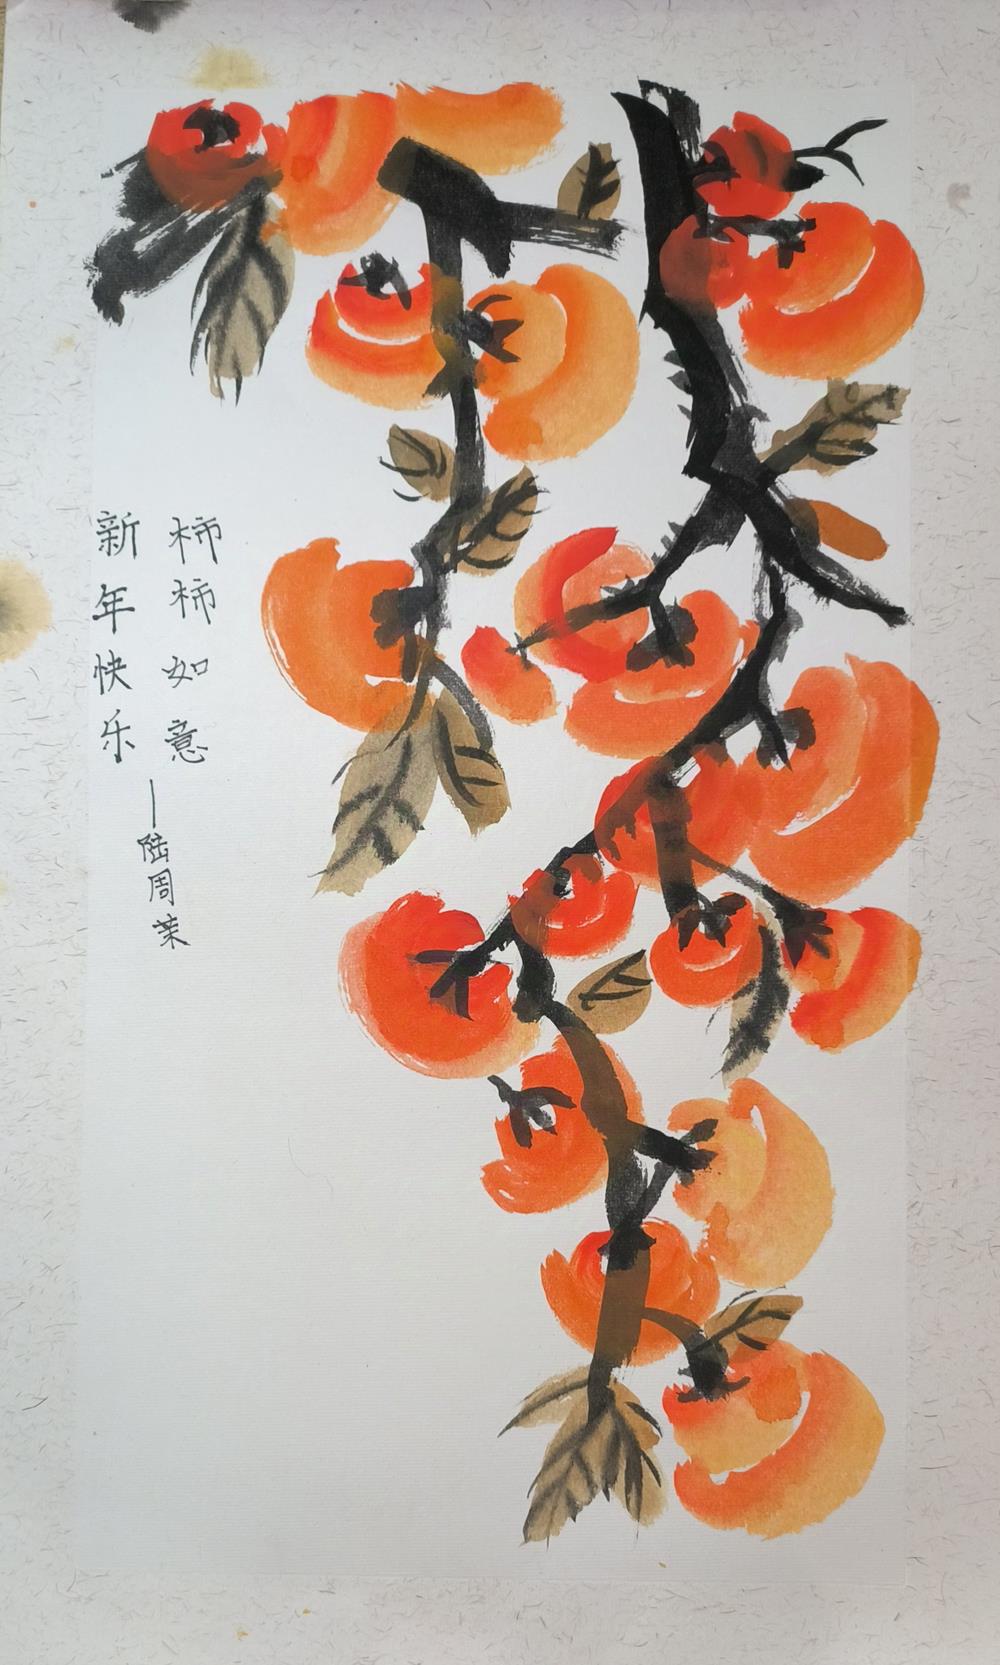 柿柿如意
新年快乐
—陆周茉